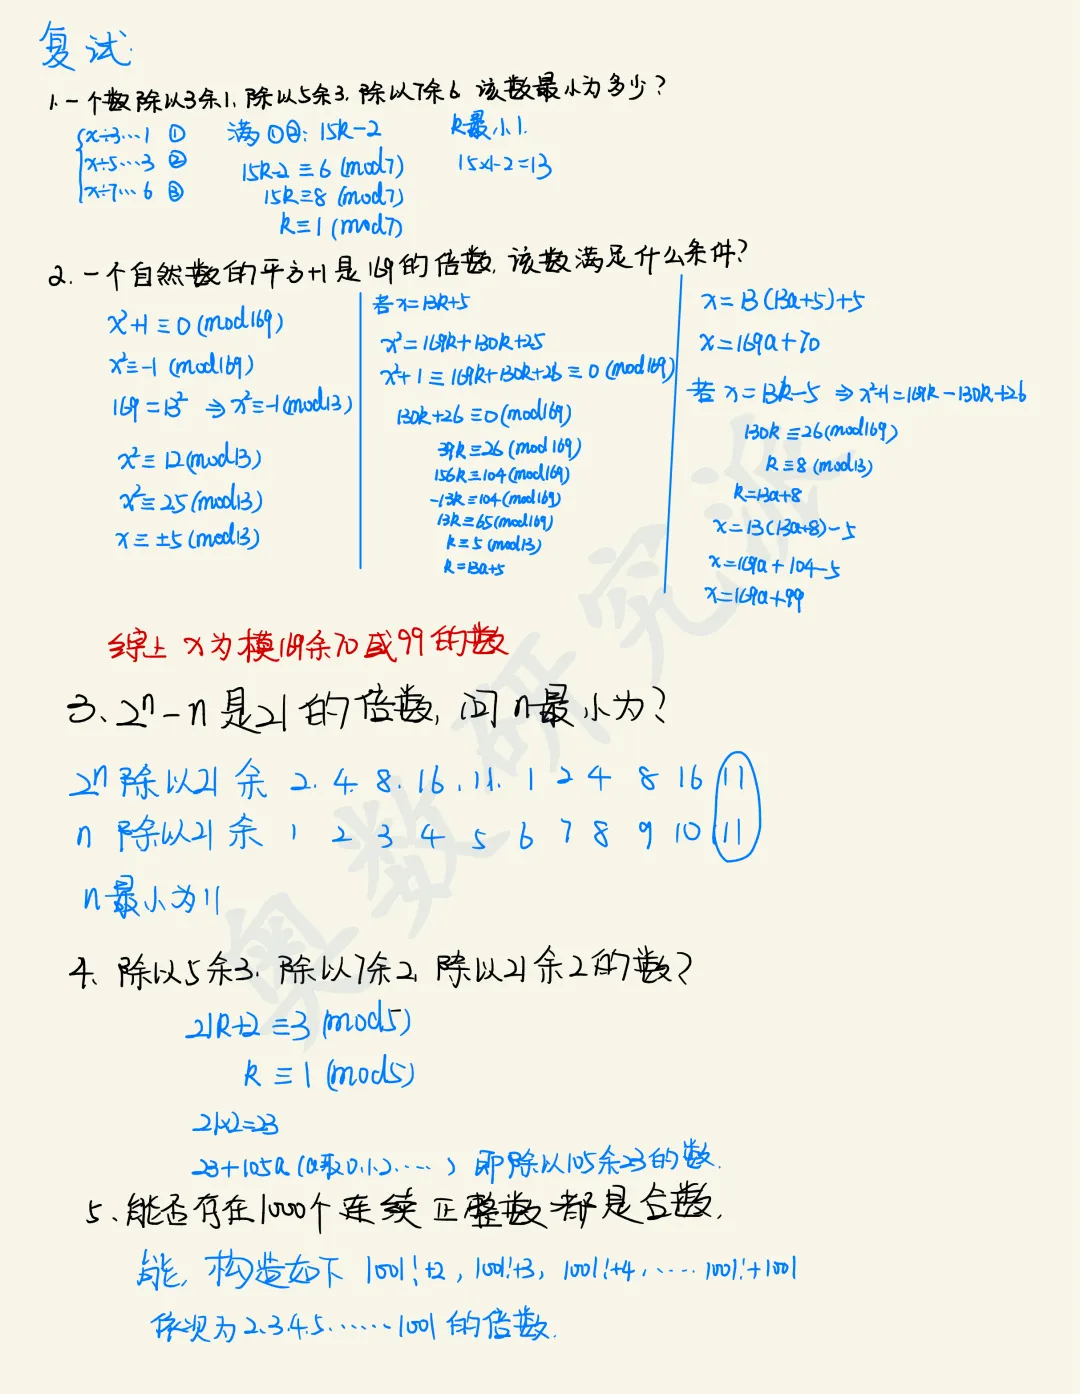 复试.
1.一个数除以3余1,除以5余3,除以7余6 该数最小为多少?
x÷3…1 ① 满①②: 15k-2 k最小1.
x÷5…3 ② 15k-2≡6 (mod7) 15×1-2=13
x÷7…6 ③ 15k≡8 (mod7)
k≡1 (mod7)
2.一个自然数的平方+1是169的倍数,该数满足什么条件?
x²+1≡0(mod169)
x²≡-1 (mod169)
169=13² ⇒x²≡-1(mod13)
x²≡12(mod13)
x²≡25(mod13)
x≡±5(mod13)
若x=13k+5
x²=169k+130k+25
x²+1≡169k+130k+26≡0(mod169)
130k+26≡0(mod169)
39k≡26(mod169)
156k≡104(mod169)
-13k≡104(mod169)
13k≡65(mod169)
k≡5(mod13)
k=13a+5
x=13(13a+5)+5
x=169a+70
若x=13k-5 ⇒x²+1=169k-130k+26
130k≡26(mod169)
k≡8(mod13)
k=13a+8
x=13(13a+8)-5
x=169a+104-5
x=169a+99
综上 x为模169余70或99的数
3、2ⁿ-n是21的倍数,问n最小为?
2ⁿ除以21余 2. 4. 8. 16. 11. 1 2 4 8 16 11
n 除以21余 1 2 3 4 5 6 7 8 9 10 11
n最小为11
4、除以5余3,除以7余2,除以21余2的数?
21k+2≡3(mod5)
k≡1(mod5)
21×2=23
23+105a(a取0.1.2.……) 即除以105余23的数.
5、能否存在1000个连续正整数都是合数.
能,构造如下 1001!+2,1001!+3,1001!+4,……1001!+1001
依次为2.3.4.5.……1001的倍数.
奥数研究派